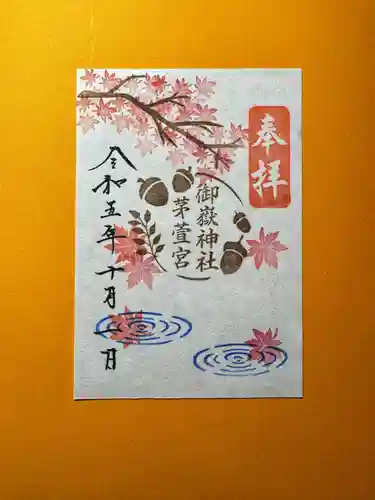 奉拝
御嶽神社
茅萱宮
令和五年十月一日